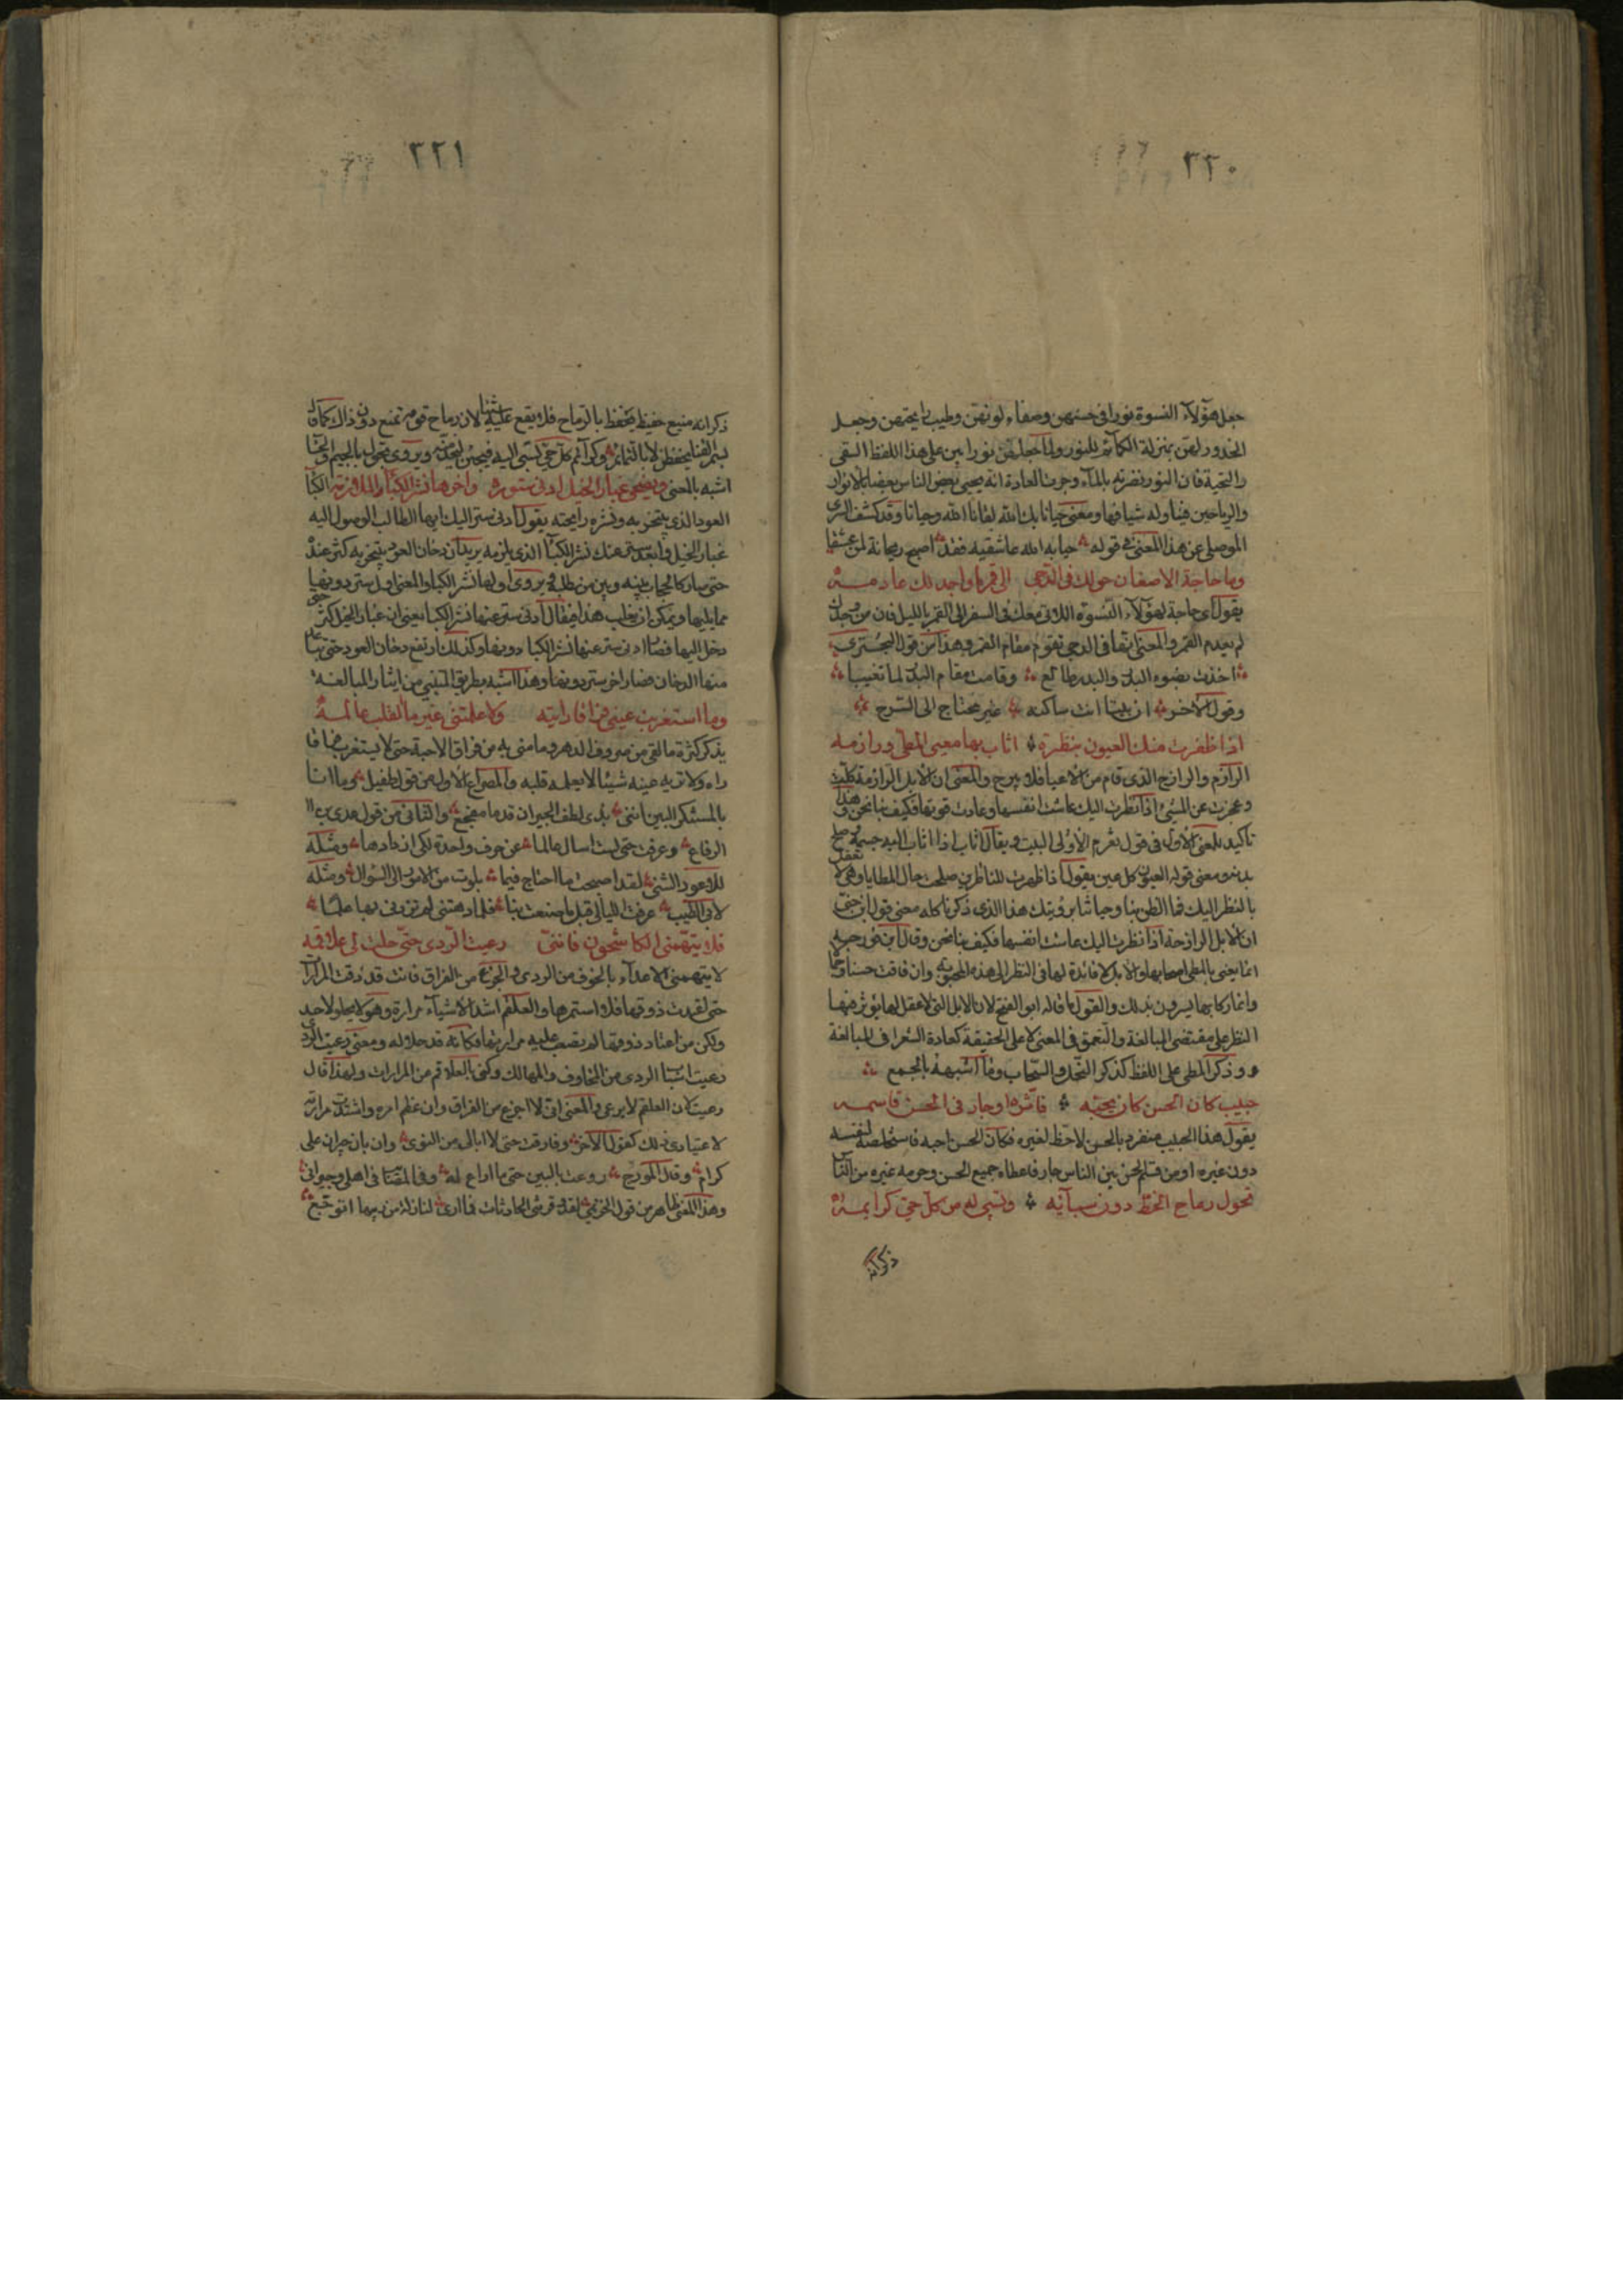 ٢٢٠
جعل هؤلاء النسوة نورا في حسنهن وصفاء لونهن وطيب رايحتهن وجعل
الخدور لهن بمنزلة الكمائم للنور ولما جعلهن نورا بنى على هذا اللفظ السقي
والتحية فان النور نضرته بالماء وجرت العادة انه يحيى بعض الناس بعضا بالانوار
والرياحين فيناوله شيا فيها ومعنى حيانا بك الله لقانا الله وحيانا وقد كشف السري
الموصلي عن هذا المعنى في قوله حيا به الله عاشقيه فقد اصبح ريحانة لمن عشقا
وما حاجة الاظعان حولك في الدجى الى قمر ما واجد لك عادمه
يقول اي حاجة لهؤلاء النسوة اللاتي معك في السفر الى القمر بالليل فان من وجدك
لم يعدم القمر والمعنى انها في الدجى تقوم مقام القمر وهذا من قول البحتري
اخذت بضوء البدر والبدر طالع وقامت مقام البدر لما تغيبا
وقول الاخر ان بيتا انت ساكنه غير محتاج الى السرج
اذا ظفرت منك العيون بنظرة اثاب بها معيى المطي ورازمه
الرازم والرازح الذي قام من الاعيا فلا يبرح والمعنى ان الابل الرازمة كلت
وعجزت عن المشي اذا نظرت اليك عاشت انفسها وعادت قوتها فكيف بنا نحن وهذا
تاكيد للمعنى الاول في قول تغرم الاولى البيت ويقال اثاب اذا اثاب اليه جسمه وصلح
بدنه ومعنى قوله العيون كل عين يقول اذا ظهرت للناظرين صلحت حال المطايا وهي لا تعقل
بالنظر اليك فما الظن بنا وحياتنا برؤيتك هذا الذي ذكرنا كله معنى قول ابن جني
ان الابل الرازحة اذا نظرت اليك عاشت انفسها فكيف بنا نحن وقال ابن فورجه
انما يعني بالمطي اصحابها والابل لا فائدة لها في النظر الى هذه المحبوبة وان فاقت حسنا وجمالا
وانما ركابها يسرون بذلك والقول ما قاله ابو الفتح لان الابل التي لا عقل لها يؤثر فيها
النظر على مقتضى المبالغة والتعمق في المعنى لا على الحقيقة كعادة الشعرا في المبالغة
وذكر المطي على اللفظ كذكر النخل والسحاب وما اشبهه بالجمع
حبيب كان الحسن كان يحبه فآثره او جار في الحسن قاسمه
يقول هذا الحبيب منفرد بالحسن لاحظ لغيره فكان الحسن احبه فاستخلصه لنفسه
دون غيره او من قسم الحسن بين الناس جار فاعطاه جميع الحسن وحرمه غيره من الناس
تحول رماح الخط دون سبائه وتسبى له من كل حي كرايمه
ذكر انه
٢٢١
ذكر انه منيع حفيظ يحفظ بالرماح فلا يقع عليه سبا لان رماح قومه تمنع دون ذاك كما قال
بسمر القنا يحفظن لا بالتمائم وكرائم كل حي تسبى اليه فيجعلن له خدما ويروى تحول بالجيم والحا
اشبه بالمعنى ويضحي غبار الخيل ادنى ستوره واخرها نشر الكباء الملازمه الكبا
العود الذي يتبخر به ونشره رايحته يقول ادنى ستر اليك ايها الطالب الوصول اليه
غبار الخيل وابعد ستر عنك نشر الكباء الذي يلزمه يريد ان دخان العود يتبخر به كثر عنده
حتى صار كالحجاب بينه وبين من يطلبه ويروى اولها نشر الكبا والمعنى اول ستر دونها
مما يليها ويمكن ان يقلب هذا فيقال ادنى ستر عنها نشر الكبا يعني ان غبار الخيل كثر حتى
دخل اليها فصار ادنى ستر عنها نشر الكبا دونها وكذلك ارتفع دخان العود حتى تباعد
منها الدخان فصار اخر ستر دونها وهذا اشبه بطريق المتنبي من ايثار المبالغة
وما استغربت عيني فراقا رايته ولا علمتني غير ما القلب عالمه
يذكر كثرة ما لقى من صروف الدهر وما مني به من فراق الاحبة حتى لا يستغرب فراقا
راه ولا تريه عينه شيئا لا يعلمه قلبه والمصراع الاول من قول طفيل وما انا
بالمستنكر البين انني بذي لطف الجيران قدما مفجع والثاني من قول عدي بن
الرقاع وعرفت حتى لست اسال عالما عن حرف واحدة لكي ازدادها ومثله
للاعور الشني لقد اصبحت ما احتاج فيما بلوت من الامور الى السؤال ومثله
لابي الطيب عرفت الليالي قبل ما صنعت بنا فلما دهتني لم تزدني بها علما
فلا يتهمني الكاشحون فانني رعيت الردى حتى حلت لي علاقمه
لا يتهمني الاعداء بالخوف من الردى والجزع من الفراق فانت قد ذقت المرارات
حتى تعودت ذوقها فلا استمرها والعلقم اشد الاشياء مرارة وهو لا يحلو لاحد
ولكن من اعتاد ذوقها لم تصعب عليه مرارتها فكانه قد حلا له ومعنى رعيت الردى
رعيت اسبا الردى من المخاوف والمهالك وكنى بالعلاقم من المرارات ولهذا قال
رعيت لان العلقم لا يرعى والمعنى اني لا اجزع من الفراق وان عظم امره واشتدت مرارته
لاعتيادي ذلك كقول الاخر وفارقت حتى لا ابالي من النوى وان بان جيران علي
كرام وقال المؤرج روعت بالبين حتى ما اراع له وفي المصائب في اهلي وجيراني
وهذا المعنى ظاهر من قول الخريمي لقد وقرتني الحادثات فما ارى لنازلة من ريبها اتوجع